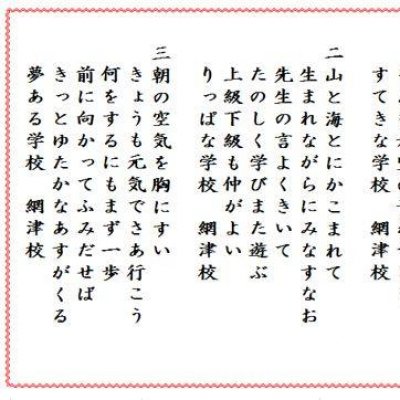 すてきな学校　網津校
二 山と海とにかこまれて
生まれながらにみなすなお
先生の言よくきいて
たのしく学びまた遊ぶ
上級下級も仲がよい
りっぱな学校　網津校
三 朝の空気を胸にすい
きょうも元気でさあ行こう
何をするにもまず一歩
前に向かってふみだせば
きっとゆたかなあすがくる
夢ある学校　網津校